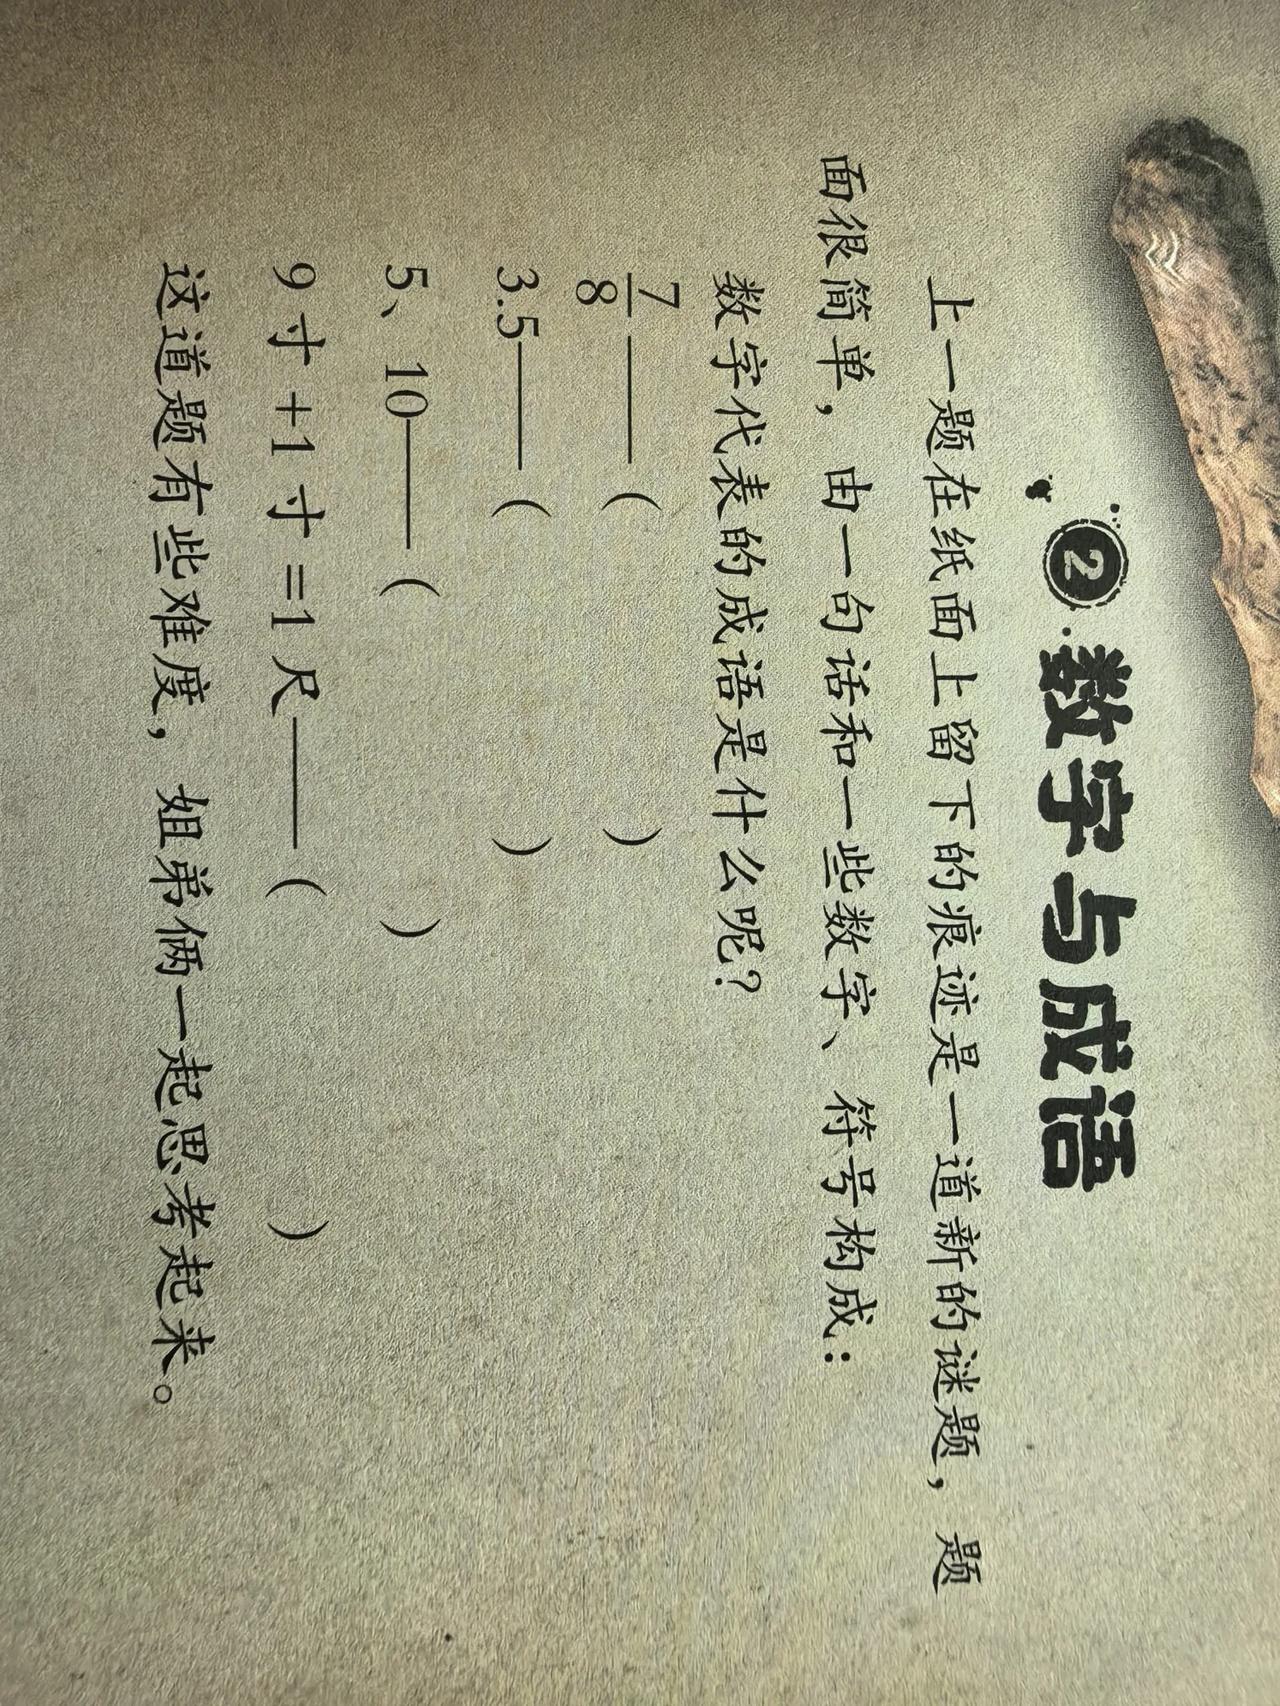 2 数字与成语
上一题在纸面上留下的痕迹是一道新的谜题，题
面很简单，由一句话和一些数字、符号构成：
数字代表的成语是什么呢？
7/8——（ ）
3.5——（ ）
5、10——（ ）
9寸+1寸=1尺——（ ）
这道题有些难度，姐弟俩一起思考起来。